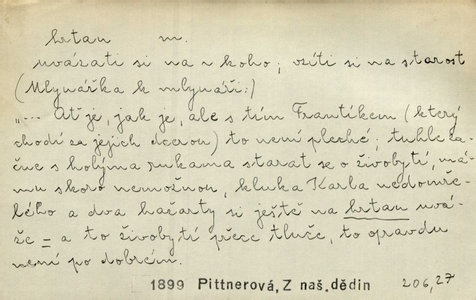 hrtan m.
uvázati si na ~ koho; vzíti si na starost
(Mlynářka k mlynáři:)
"... Ať je, jak je, ale s tím Frantíkem (který
chodí za jejich dcerou) to není pleché; tuhle za-
čne s holýma rukama starat se o živobytí, má-
mu skoro nemožnou, kluka Karla nedomrle-
lého a dva hažarty si ještě na hrtan uvá-
že - a to živobytí přece tluče, to opravdu
není po dobrém.
1899 Pittnerová, Z naš. dědin 206, 27